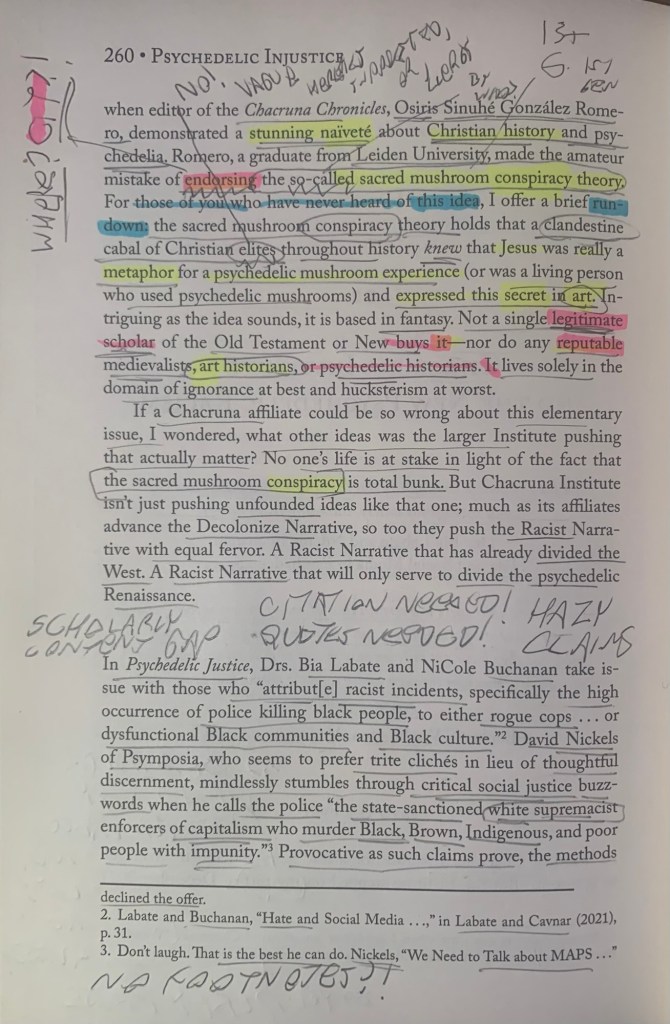 NO! VAGUE
BY WHO?
13+
260 • PSYCHEDELIC INJUSTICE
when editor of the Chacruna Chronicles, Osiris Sinuhé González Rome-
ro, demonstrated a stunning naïveté about Christian history and psy-
chedelia. Romero, a graduate from Leiden University, made the amateur
mistake of endorsing the so-called sacred mushroom conspiracy theory.
For those of you who have never heard of this idea, I offer a brief run-
down: the sacred mushroom conspiracy theory holds that a clandestine
cabal of Christian elites throughout history knew that Jesus was really a
metaphor for a psychedelic mushroom experience (or was a living person
who used psychedelic mushrooms) and expressed this secret in art. In-
triguing as the idea sounds, it is based in fantasy. Not a single legitimate
scholar of the Old Testament or New buys it—nor do any reputable
medievalists, art historians, or psychedelic historians. It lives solely in the
domain of ignorance at best and hucksterism at worst.
If a Chacruna affiliate could be so wrong about this elementary
issue, I wondered, what other ideas was the larger Institute pushing
that actually matter? No one's life is at stake in light of the fact that
the sacred mushroom conspiracy is total bunk. But Chacruna Institute
isn't just pushing unfounded ideas like that one; much as its affiliates
advance the Decolonize Narrative, so too they push the Racist Narra-
tive with equal fervor. A Racist Narrative that has already divided the
West. A Racist Narrative that will only serve to divide the psychedelic
Renaissance.
CITATION NEEDED! HAZY
SCHOLARLY QUOTES NEEDED! CLAIMS
CONTENT GAP
In Psychedelic Justice, Drs. Bia Labate and NiCole Buchanan take is-
sue with those who “attribut[e] racist incidents, specifically the high
occurrence of police killing black people, to either rogue cops … or
dysfunctional Black communities and Black culture.”2 David Nickels
of Psymposia, who seems to prefer trite clichés in lieu of thoughtful
discernment, mindlessly stumbles through critical social justice buzz-
words when he calls the police “the state-sanctioned white supremacist
enforcers of capitalism who murder Black, Brown, Indigenous, and poor
people with impunity.”3 Provocative as such claims prove, the methods
declined the offer.
2. Labate and Buchanan, “Hate and Social Media …,” in Labate and Cavnar (2021),
p. 31.
3. Don't laugh. That is the best he can do. Nickels, “We Need to Talk about MAPS …”
NO FOOTNOTES?!